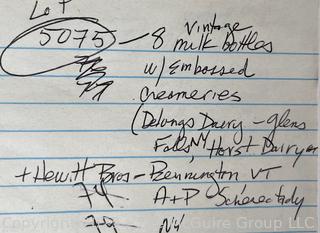 Lot
5075 - 8 vintage
milk bottles
w/ Embossed
creameries
(Delongs Dairy - glens
Falls, NY, Horst Dairy
+ Hewitt Bros - Bennington VT
A+P Schenectady
NY